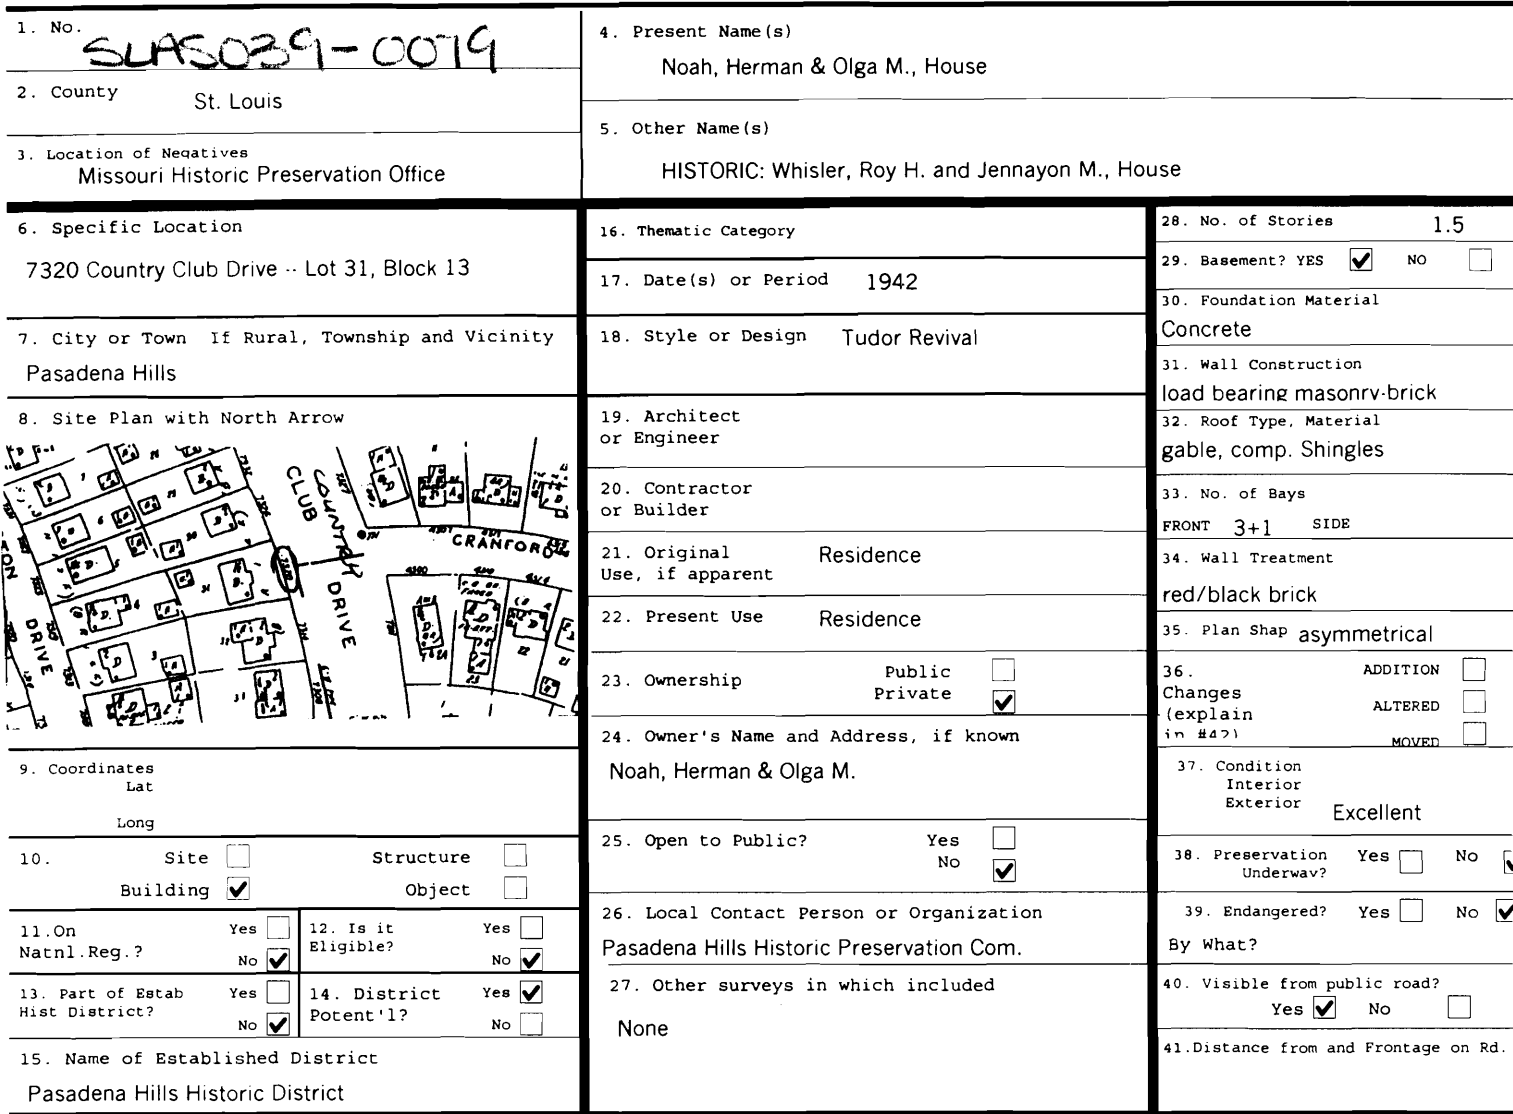 1. No. SLAS039-0079
2. County St. Louis
3. Location of Negatives
Missouri Historic Preservation Office
4. Present Name(s)
Noah, Herman & Olga M., House
5. Other Name(s)
HISTORIC: Whisler, Roy H. and Jennayon M., House
6. Specific Location
7320 Country Club Drive -- Lot 31, Block 13
7. City or Town If Rural, Township and Vicinity
Pasadena Hills
8. Site Plan with North Arrow
COUNTRY
CLUB
DRIVE
CRANFORD
DRIVE
9. Coordinates
Lat
Long
10. Site Structure
Building Object
11.On Yes
Natnl.Reg.? No
12. Is it Yes
Eligible? No
13. Part of Estab Yes
Hist District? No
14. District Yes
Potent'l? No
15. Name of Established District
Pasadena Hills Historic District
16. Thematic Category
17. Date(s) or Period 1942
18. Style or Design Tudor Revival
19. Architect
or Engineer
20. Contractor
or Builder
21. Original Residence
Use, if apparent
22. Present Use Residence
23. Ownership Public
Private
24. Owner's Name and Address, if known
Noah, Herman & Olga M.
25. Open to Public? Yes
No
26. Local Contact Person or Organization
Pasadena Hills Historic Preservation Com.
27. Other surveys in which included
None
28. No. of Stories 1.5
29. Basement? YES NO
30. Foundation Material
Concrete
31. Wall Construction
load bearing masonry-brick
32. Roof Type, Material
gable, comp. Shingles
33. No. of Bays
FRONT 3+1 SIDE
34. Wall Treatment
red/black brick
35. Plan Shap asymmetrical
36. ADDITION
Changes
(explain ALTERED
in #42) MOVED
37. Condition
Interior
Exterior Excellent
38. Preservation Yes No
Underway?
39. Endangered? Yes No
By What?
40. Visible from public road?
Yes No
41.Distance from and Frontage on Rd.